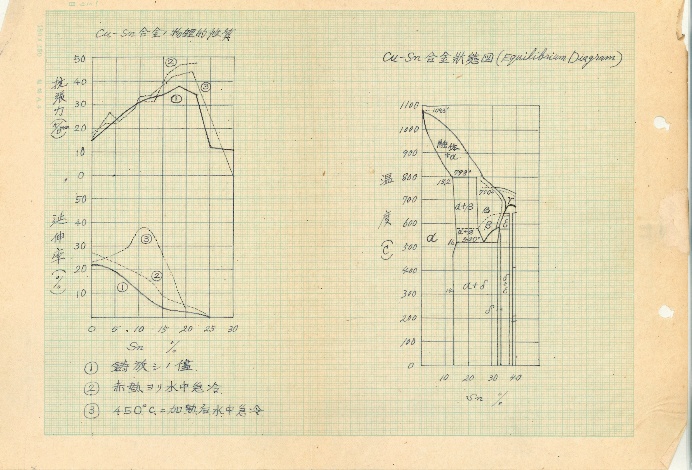 Cu-Sn合金ノ物理的性質
抗張力
50
40
30
20
10
0
延伸率(%)
50
40
30
20
10
②
③
①
③
②
①
0 5 10 15 20 25 30
Sn %
① 鋳放シノ儘
② 赤熱ヨリ水中急冷
③ 450°C ニ加熱后水中急冷
Cu-Sn合金狀態図(Equilibrium Diagram)
温度(C)
1100
1000
900
800
700
600
500
400
300
200
100
0
798°
α+β
β
γ
α
α+δ
δ
10 20 30 40
Sn %